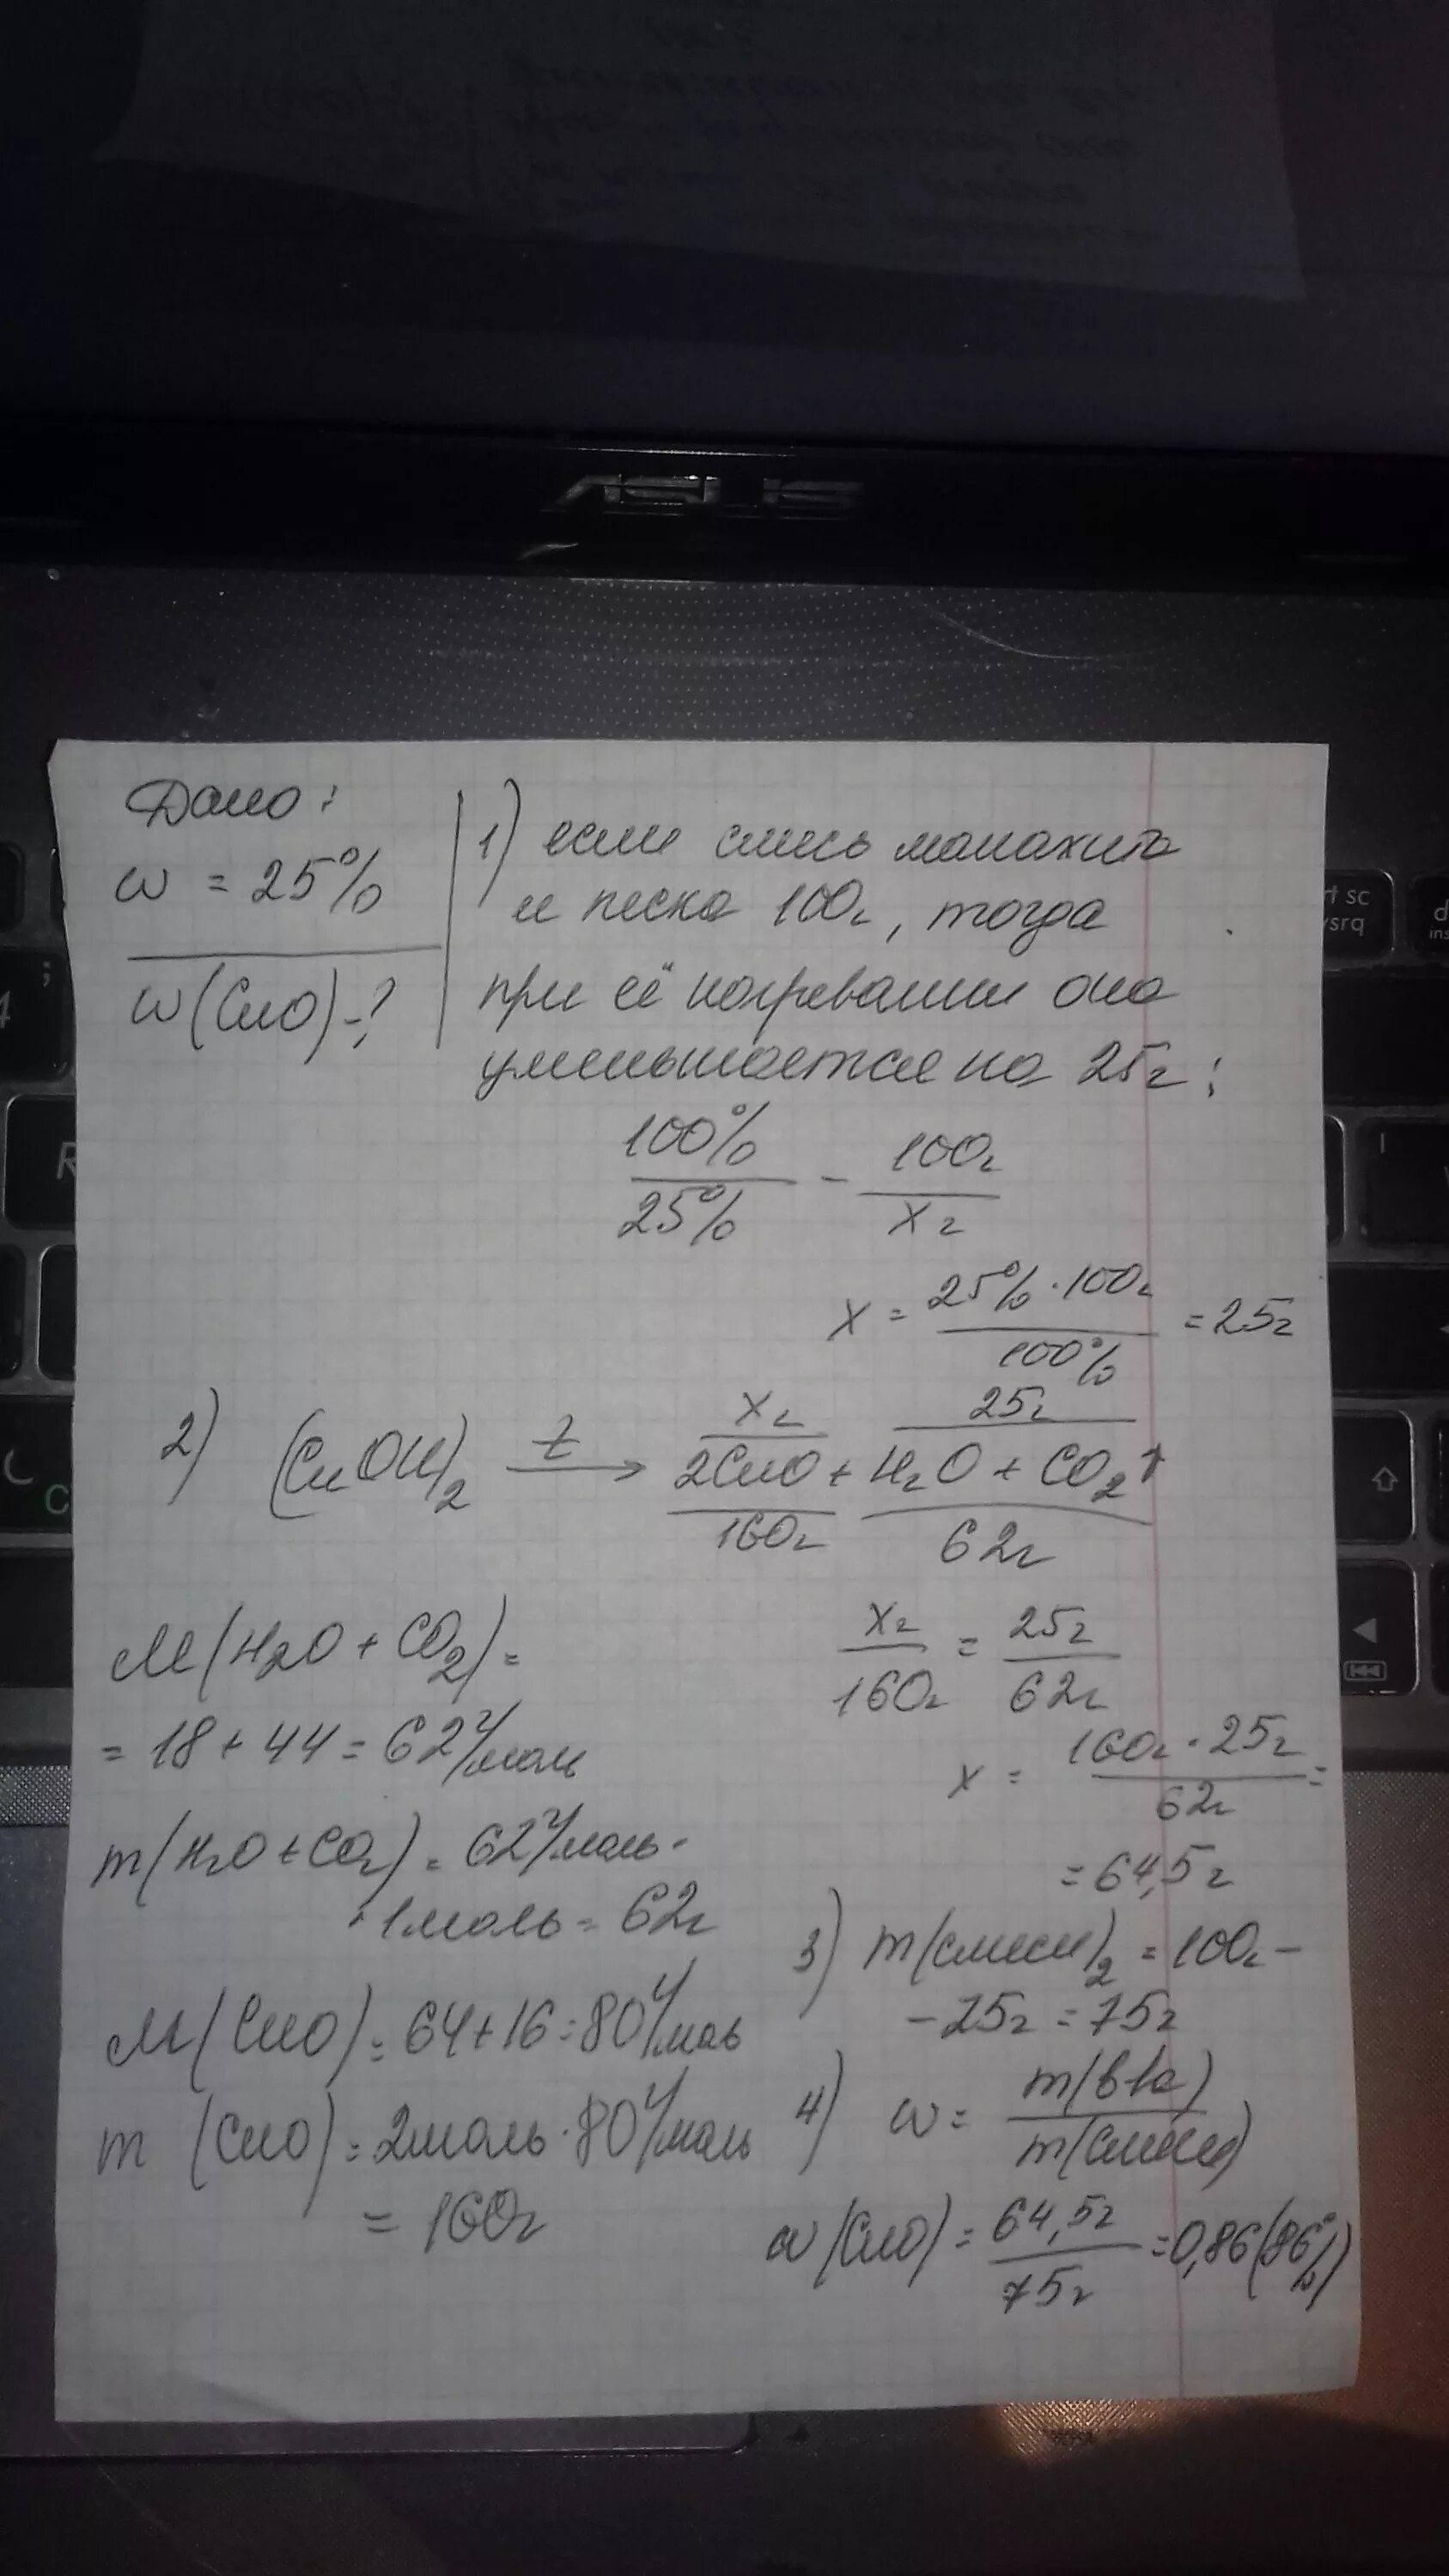 ASUS
Дано:
w = 25%
w(CuO)-?
1) если смесь малахита
и песка 100г, тогда
при её нагревании она
уменьшается на 25г:
100% / 25% - 100г / x г
x = 25% · 100г / 100% = 25г
2) (CuOH)2 t → 2CuO + H2O + CO2↑
x г 25г
160г 62г
M(H2O + CO2) =
= 18 + 44 = 62 г/моль
m(H2O + CO2) = 62 г/моль ·
· 1моль = 62г
M(CuO) = 64 + 16 = 80 г/моль
m (CuO) = 2моль · 80 г/моль
= 160г
x г / 160г = 25г / 62г
x = 160г · 25г / 62г =
= 64,5 г
3) m(смеси)2 = 100г -
- 25г = 75г
4) w = m(в-ва) / m(смеси)
w(CuO) = 64,5г / 75г = 0,86 (86%)